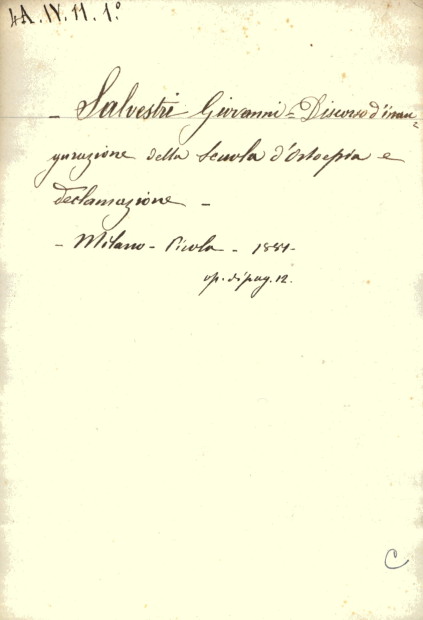 4A. IV. 11. 1º
- Salvestri Giovanni = Discorso d'inau-
gurazione della Scuola d'Ortoepia e
declamazione -
- Milano - Pirola - 1881 -
op. di pag. 12.
C